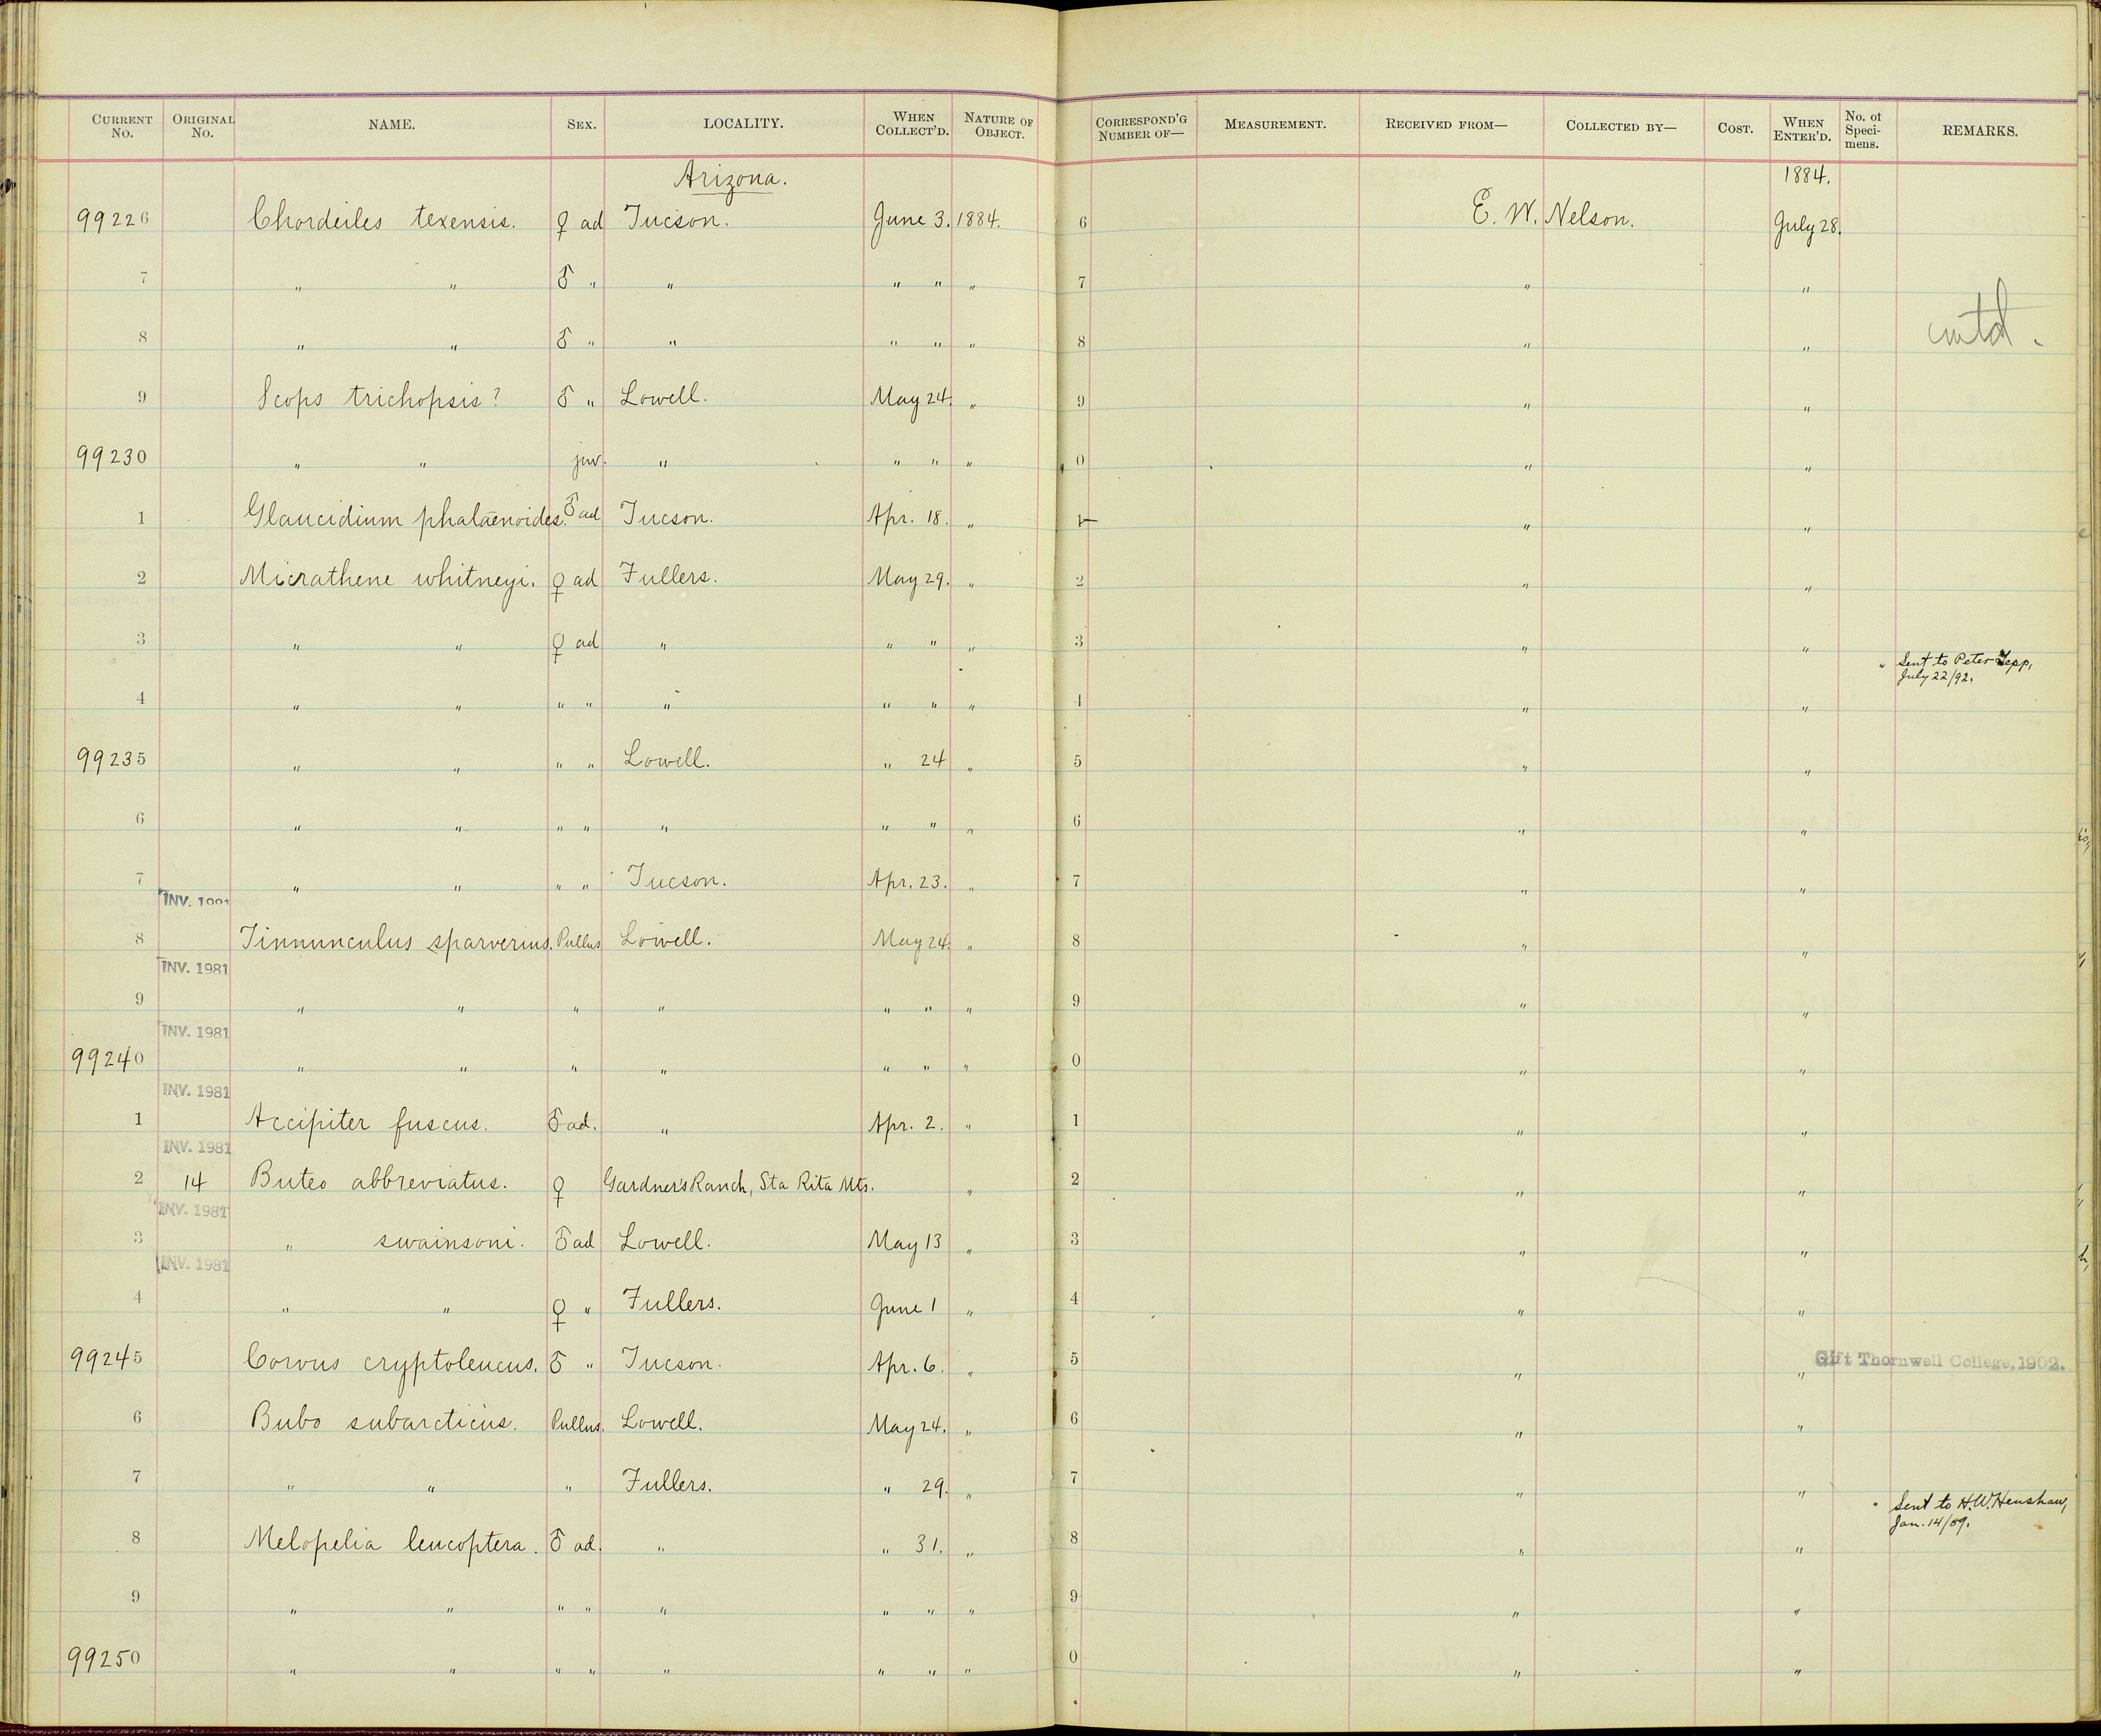 CURRENT No. ORIGINAL No. NAME. SEX. LOCALITY. WHEN COLLECT'D. NATURE OF OBJECT. CORRESPOND'G NUMBER OF— MEASUREMENT. RECEIVED FROM— COLLECTED BY— COST. WHEN ENTER'D. No. of Specimens. REMARKS.
Arizona. 1884.
99226 Chordeiles texensis. ♀ ad Tucson. June 3. 1884. 6 E. W. Nelson. July 28.
7 " " ♂ " " " " " 7 " "
8 " " ♂ " " " " " 8 " " cutd.
9 Scops trichopsis? ♂ " Lowell. May 24. " 9 " "
99230 " " juv. " " " " 0 " "
1 Glaucidium phalaenoides. ♂ ad Tucson. Apr. 18. " 1 " "
2 Micrathene whitneyi. ♀ ad Fullers. May 29. " 2 " "
3 " " ♀ ad " " " " 3 " "
" Sent to Peter Jepp, July 22/92.
4 " " " " " " " " 4 " "
99235 " " " " Lowell. " 24 " 5 " "
6 " " " " " " " " 6 " "
7 " " " " Tucson. Apr. 23. " 7 " "
INV. 1981
8 Tinnunculus sparverius. Pullus Lowell. May 24. " 8 " "
INV. 1981
9 " " " " " " " 9 " "
INV. 1981
99240 " " " " " " " 0 " "
INV. 1981
1 Accipiter fuscus. ♂ ad. " Apr. 2. " 1 " "
INV. 1981
2 14 Buteo abbreviatus. ♀ Gardner's Ranch, Sta Rita Mts. " 2 " "
INV. 1981
3 " swainsoni. ♂ ad Lowell. May 13 " 3 " "
INV. 1981
4 " " ♀ " Fullers. June 1 " 4 " "
99245 Corvus cryptoleucus. ♂ " Tucson. Apr. 6. " 5 " " Gift Thornwell College, 1902.
6 Bubo subarcticus. Pullus. Lowell. May 24. " 6 " "
7 " " " Fullers. " 29. " 7 " "
" Sent to H. W. Henshaw, Jan. 14/89.
8 Melopelia leucoptera. ♂ ad. " " 31. " 8 " "
9 " " " " " " " " 9 " "
99250 " " " " " " " " 0 " "